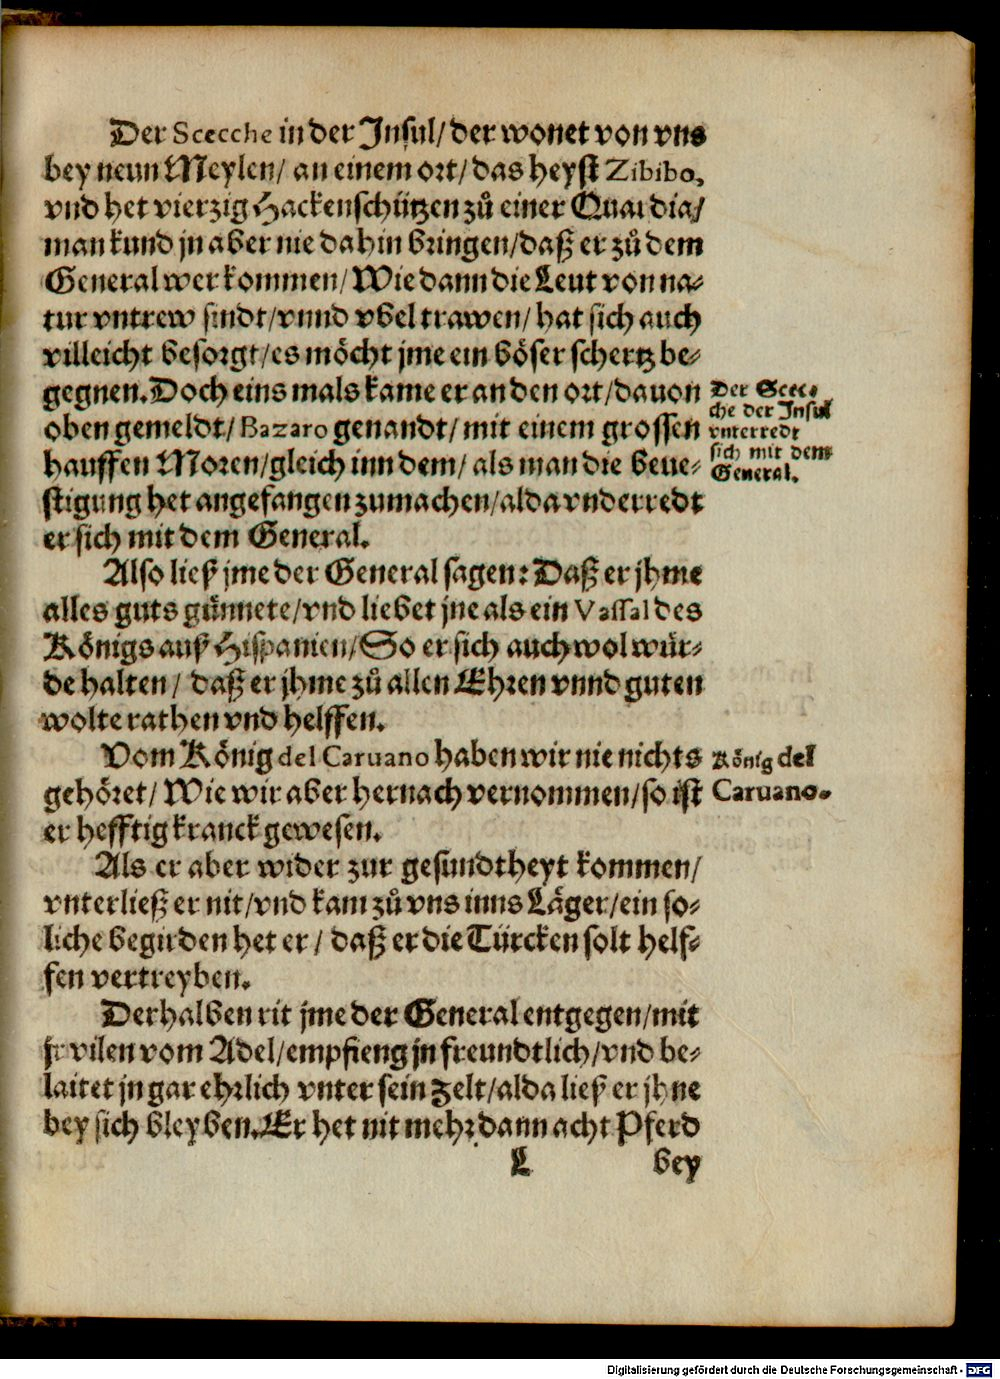 Der Scecche in der Insul/ der wonet von vns
bey neun Meylen/ an einem ort/ das heyst Zibibo,
vnd het vierzig Hackenschützen zů einer Quardia/
man kund jn aber nie dahin bringen/ daß er zů dem
General wer kommen/ Wie dann die Leut von na-
tur vntrew sindt/ vnnd vbel trawen/ hat sich auch
villeicht besorgt/ es möcht jme ein böser schertz be-
gegnen. Doch eins mals kame er an den ort/ dauon
oben gemeldt/ Bazaro genandt/ mit einem grossen
hauffen Moren/ gleich inn dem/ als man die beue-
stigung het angefangen zumachen/ alda vnderredt
er sich mit dem General.
Der Scec-
che der Insul
vnterredt
sich mit dem
General.
Also ließ jme der General sagen: Daß er jhme
alles guts günnete/ vnd liebet jne als ein Vassal des
Königs auß Hispanien/ So er sich auch wol wür-
de halten/ daß er jhme zů allen Ehren vnnd guten
wolte rathen vnd helffen.
Vom König del Caruano haben wir nie nichts
gehöret/ Wie wir aber hernach vernommen/ so ist
er hefftig kranck gewesen.
König del
Caruano.
Als er aber wider zur gesundtheyt kommen/
vnterließ er nit/ vnd kam zů vns inns Läger/ ein so-
liche begirden het er/ daß er die Türcken solt helf-
fen vertreyben.
Derhalben rit jme der General entgegen/ mit
so vilen vom Adel/ empfieng jn freundtlich/ vnd be-
laitet jn gar ehrlich vnter sein Zelt/ alda ließ er jhne
bey sich bleyben. Er het nit mehr dann acht Pferd
L bey
Digitalisierung gefördert durch die Deutsche Forschungsgemeinschaft - DFG